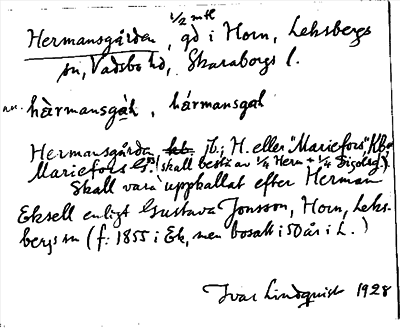 1/2 mtl
Hermansgården, gd i Horn, Leksbergs
sn, Vadsbo hd, Skaraborgs l.
hàrmansgaḷ, hármansgaḷ
Hermansgården jb.; H. eller "Mariefors", KB.
Mariefors G. (skall bestå av 1/4 Herm + 1/4
Skall vara uppkallat efter Herman
Eksell enligt Gustava Jonsson, Horn, Leks-
bergs sn (f. 1855 i Ek, men bosatt i 50 år i L.)
Ivar Lindquist 1928